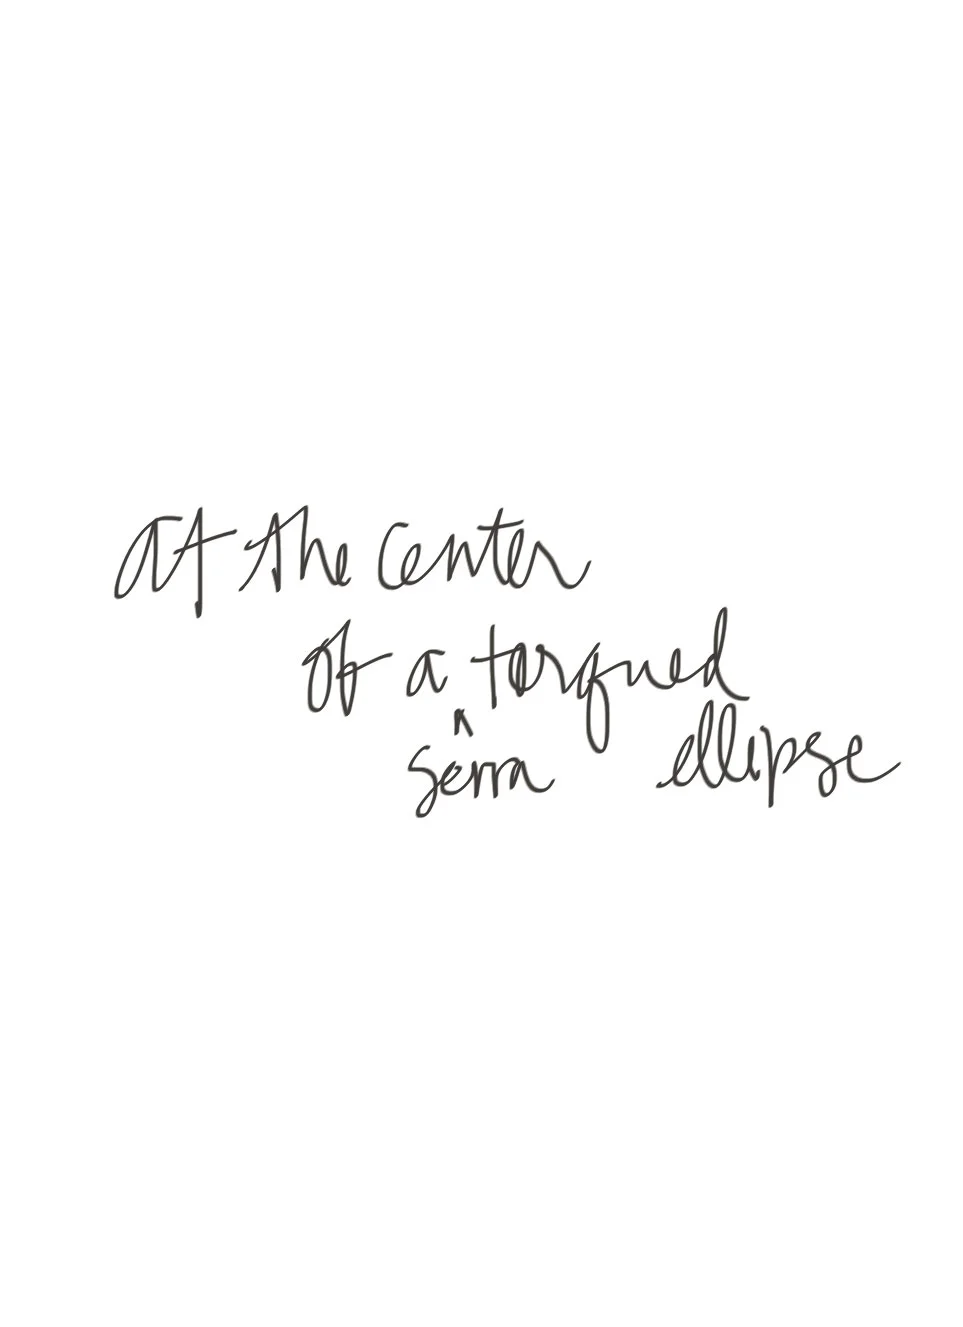 at the center
of a torqued
^
serra ellipse